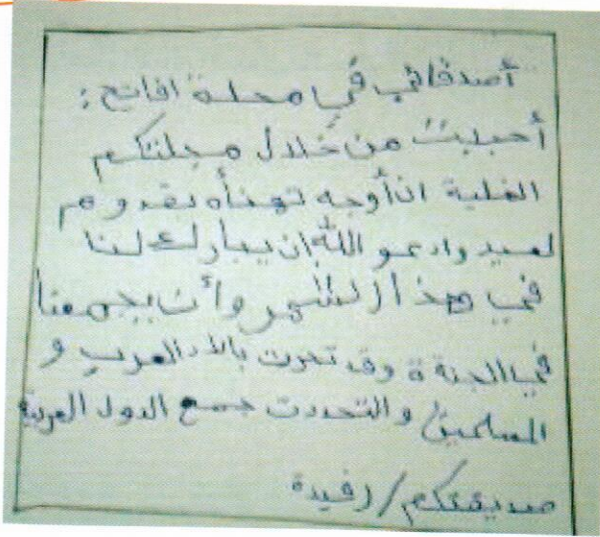 أصدقائي في مجلة "افاتح :
أحببت من خلال مجلتكم
الغلية ان أوجه تهنأه بقدوم
لعيد وادعو اللّٰه ان يبارك لنا
في هذا الشهر وأن يجمعنا
في الجنة وقد تحررت بالاد العرب و
المسلمين والتحدت جمع الدول العربية
صديقتكم / رفيدة